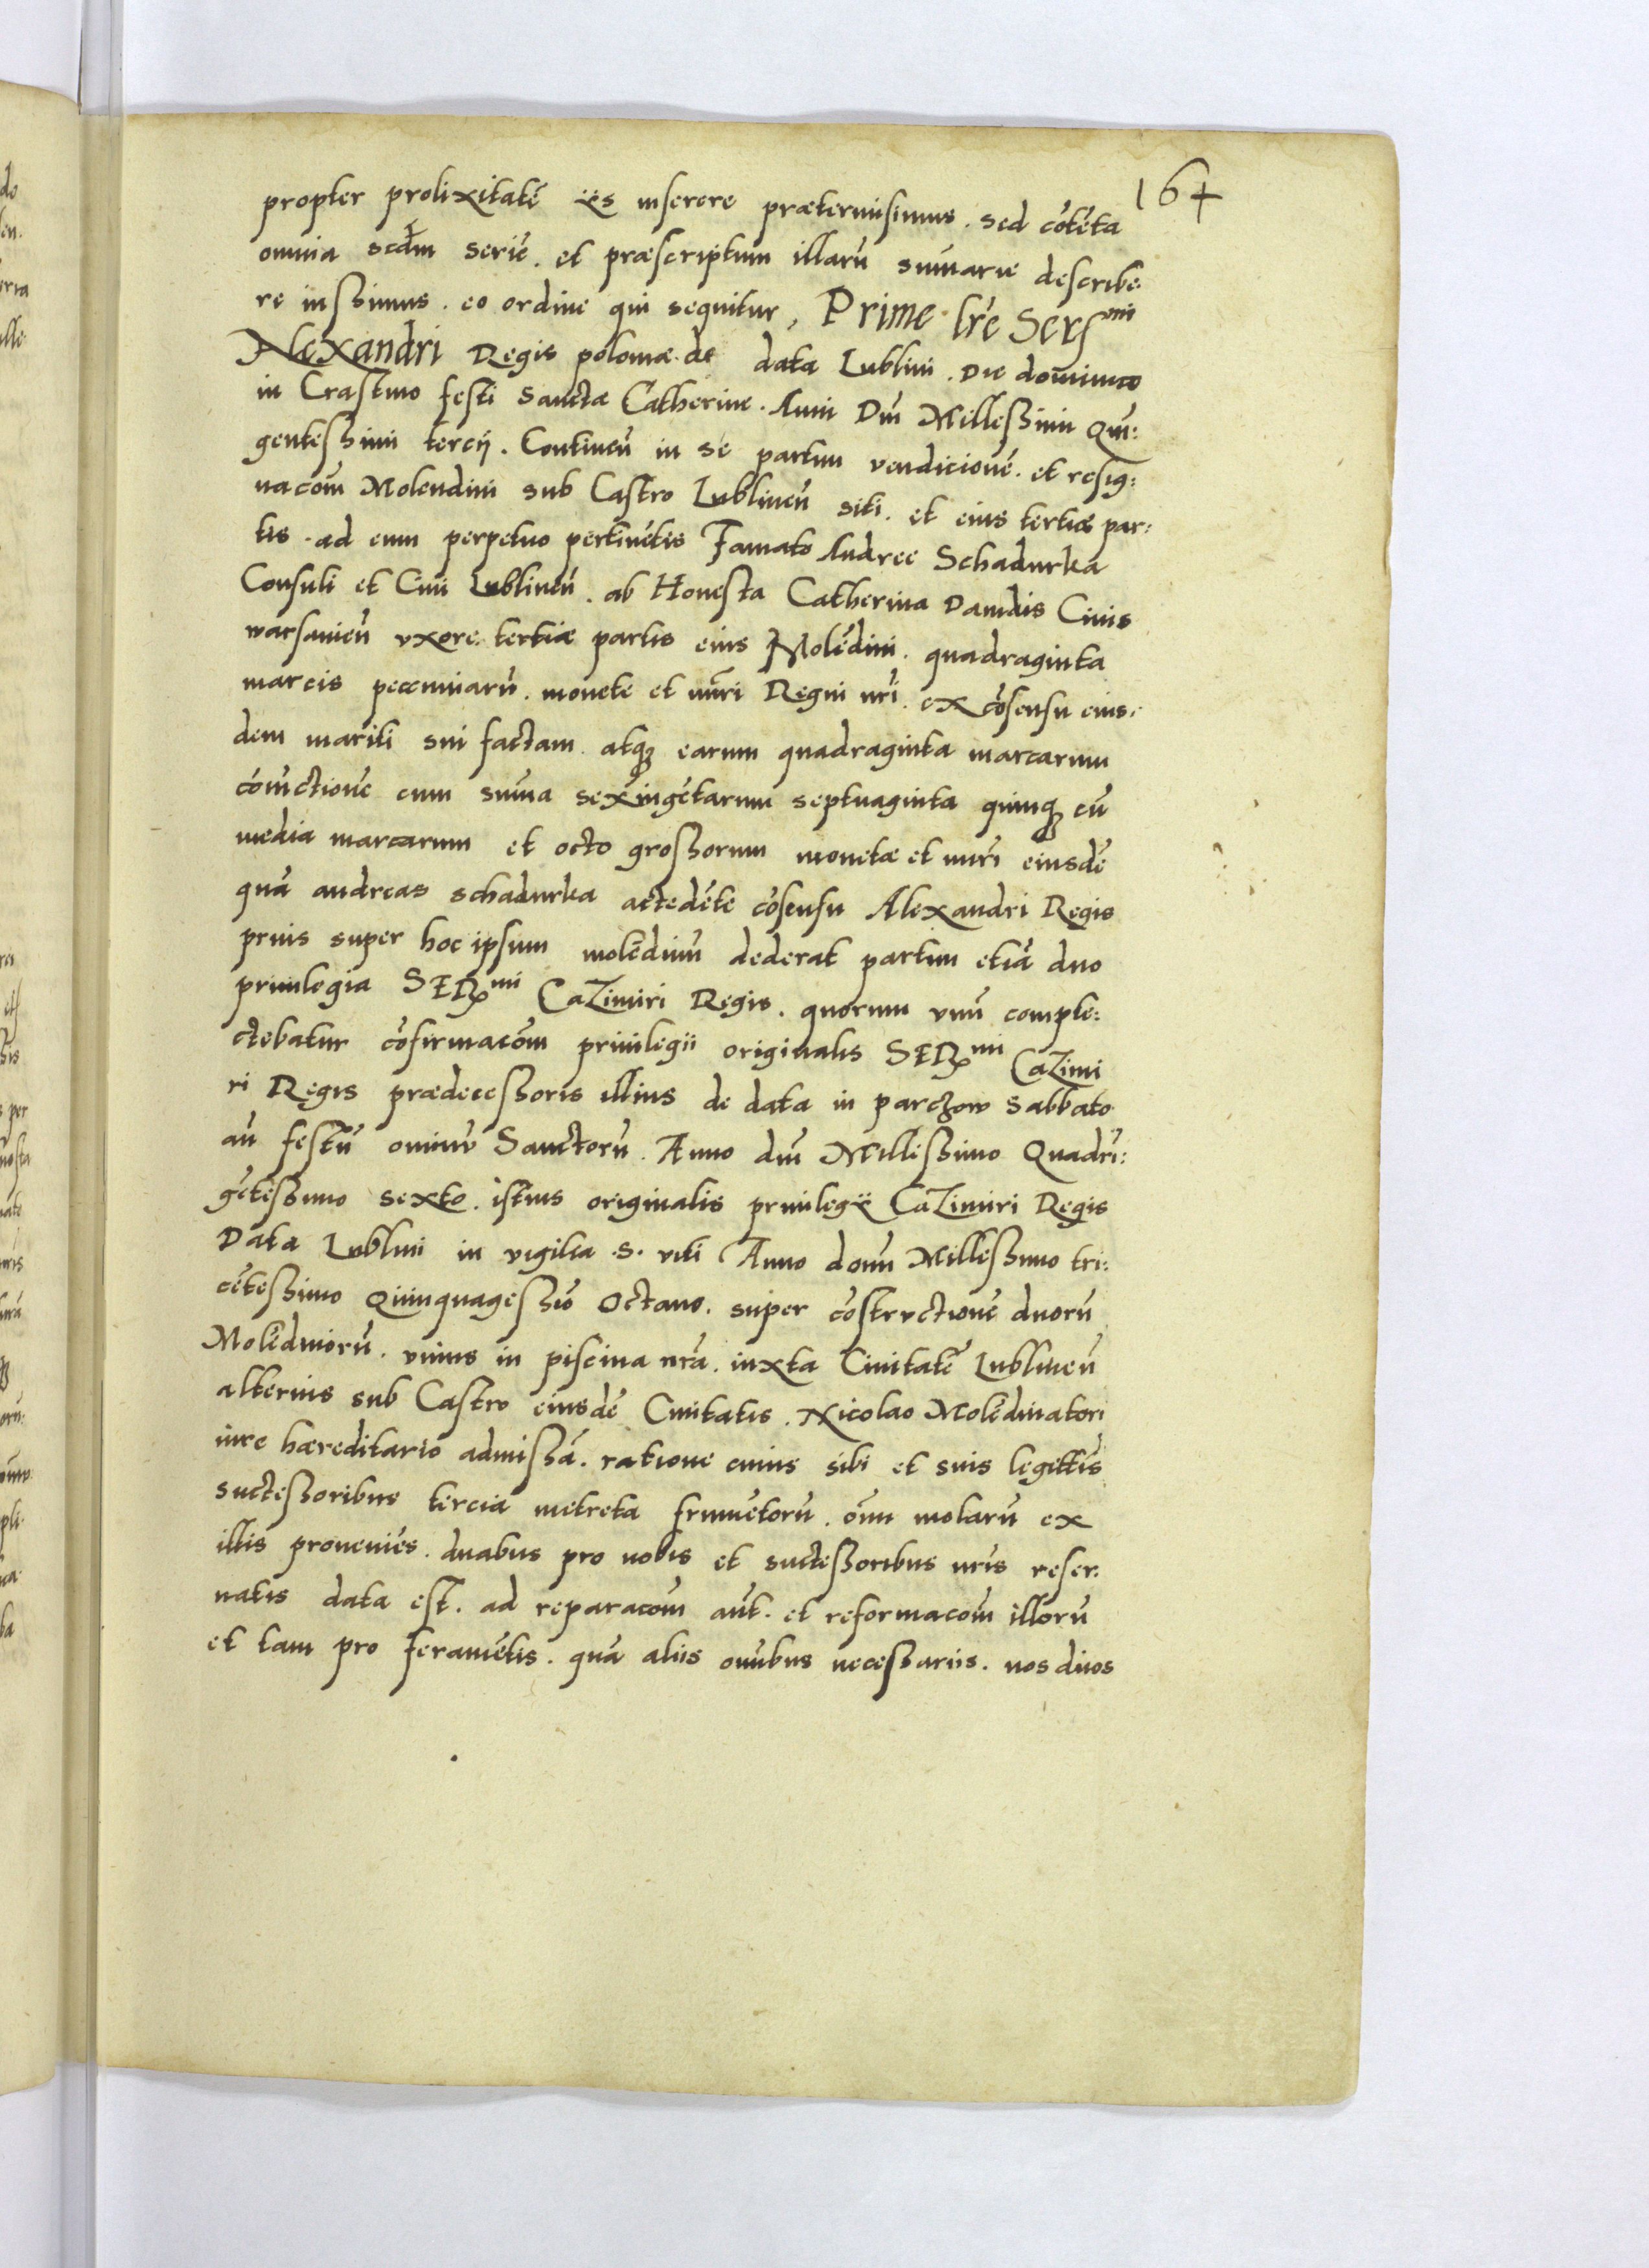 164
propter prolixitatē ijs inserere prætermisimus. sed cōtēta
omnia scdm seriē. et præscriptum illarū sum̄arie describe
re iussimus. eo ordine qui sequitur, Prime lr̄e Sersmi
Alexandri Regis poloniæ de data Lublini. Die dominico
in Crastino festi Sanctæ Catherine. Anni Dnī Millessimi Quin:
gentessimi tercij. Continen̄ in se partim vendicionē. et resig:
nacōm Molendini sub Castro Lublinen̄ siti. et eius tertiæ par:
tis. ad eum perpetuo pertinētis Famato Andree Schadurka
Consuli et Ciui Lublinen̄. ab Honesta Catherina Dauidis Ciuis
warsauien̄ vxore. tertiæ partis eius Molēdini. quadraginta
marcis pecuniarū. monete et nūri Regni nr̄i. ex cōsensu eius:
dem mariti sui factam. atq; earum quadraginta marcarum
cōiūctionē cum sum̄a sexingētarum septuaginta quinq; cū
media marcarum et octo grossorum monetæ et nūri eiusdē
quā andreas schadurka accedēte cōsensu Alexandri Regis
prius super hoc ipsum molēdinū dederat partim etiā duo
priuilegia SERmi Cazimiri Regis. quorum vnū comple:
ctebatur cōfirmacōm priuilegii originalis SERmi Cazimi
ri Regis prædecessoris illius de data in parczow Sabbato
an̄ festū omniū Sanctorū. Anno dnī Millessimo Quadri:
gētessimo sexto. istius originalis priuilegij Cazimiri Regis
Data Lublini in vigilia .S. viti Anno domī Millessimo tri:
cētessimo Quinquagessīo Octauo. super cōstructionē duorū
Molēdinorū. vnius in piscina nr̄a. iuxta Ciuitatē Lublinen̄
alterius sub Castro eiusdē Ciuitatis. Nicolao Molēdinatori
iure hæreditario admissā. ratione cuius sibi et suis legittīs
successoribus tercia metreta frumētorū. om̄i molarū ex
illis proueniēs. duabus pro nobis et successoribus nr̄is reser:
uatis data est. ad reparacōm aūt. et reformacōm illorū
et tam pro feramētis. quā aliis omībus necessariis. nos duos